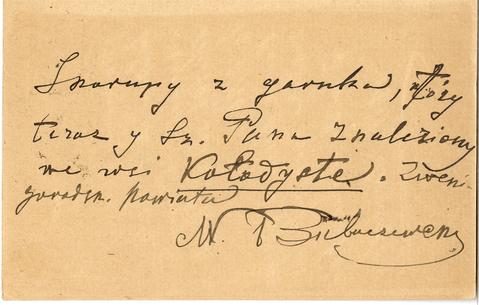 Skorupy z garnka, który
teraz y Sz. Pana znaleziony
we wsi Kołodyste. Zweni-
gorodsk. powiatu